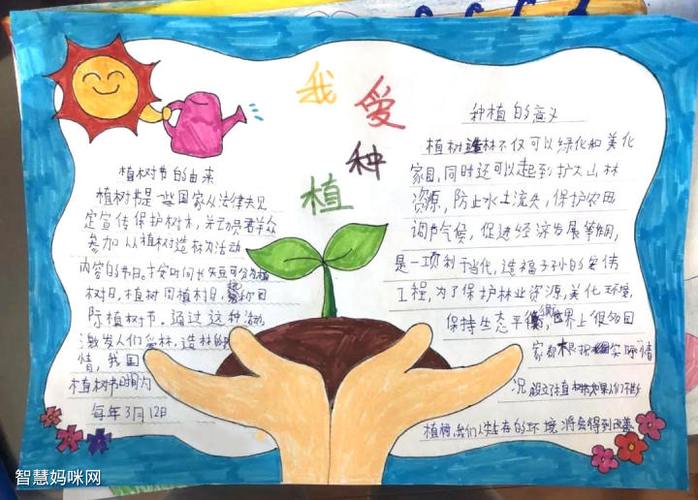 我爱种植
植树节的由来
植树节是一些国家以法律规
定宣传保护树木,并动员群众
参加以植树造林为活动
内容的节日。按时间长短可分为植
树日,植树周植树月,
际植树节。通过这种活动,
激发人们爱林,造林的
情,我国
植树节时间为
每年3月12日
种植的意义
植树造林不仅可以绿化和美化
家园,同时还可以起到扩大山林
资源,防止水土流失,保护农田
调节气候,促进经济发展等
是一项利于当代,造福子孙的宏伟
工程,为了保护林业资源,美化环境,
保持生态平衡,世界上很多国
家都根据实际情
况设立了植树
植树,我们人生存的环境将会得到改善
智慧妈咪网